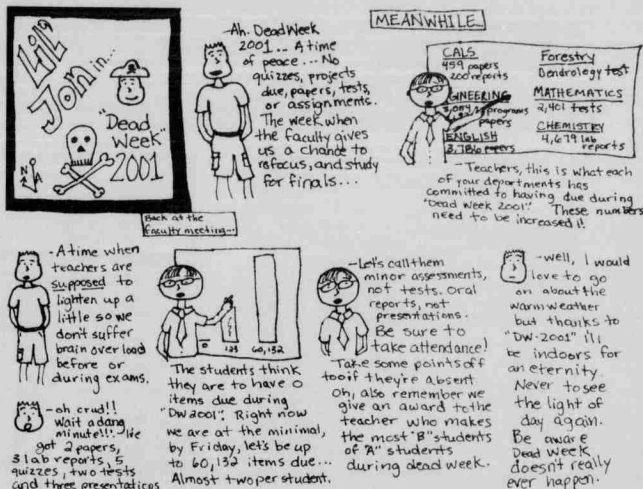 Lil'
Jon in...
"Dead
Week"
2001
N
-Ah. Dead Week
2001... A time
of peace... No
quizzes, projects
due, papers, tests,
or assignments.
The week when
the faculty gives
us a chance to
refocus, and study
for finals...
MEANWHILE
CALS
459 papers
200 reports
GINEERING
programs
papers
ENGLISH
3,786 papers
Forestry
Dendrology test
MATHEMATICS
2,401 tests
CHEMISTRY
4,679 lab
reports
-Teachers, this is what each
of your departments has
committed to having due during
"Dead Week 2001". These numbers
need to be increased!!
-A time when
teachers are
supposed to
lighten up a
little so we
don't suffer
brain over load
before or
during exams.
-oh crud!!
Wait a dang
minute!!! I've
got 2 papers,
3 lab reports, 5
quizzes, two tests
and three presentations
Back at the
faculty meeting...
0
123
60,132
The students think
they are to have 0
items due during
"DW2001". Right now
we are at the minimal,
by Friday, let's be up
to 60,132 items due...
Almost two per student.
-Let's call them
minor assessments,
not tests. Oral
reports, not
presentations.
Be sure to
take attendance!
Take some points off
too if they're absent.
Oh, also remember we
give an award to the
teacher who makes
the most "B" students
of "A" students
during dead week.
-well, I would
love to go
on about the
warm weather
but thanks to
"DW-2001" i'll
be indoors for
an eternity.
Never to see
the light of
day again.
Be aware
Dead week
doesn't really
ever happen.